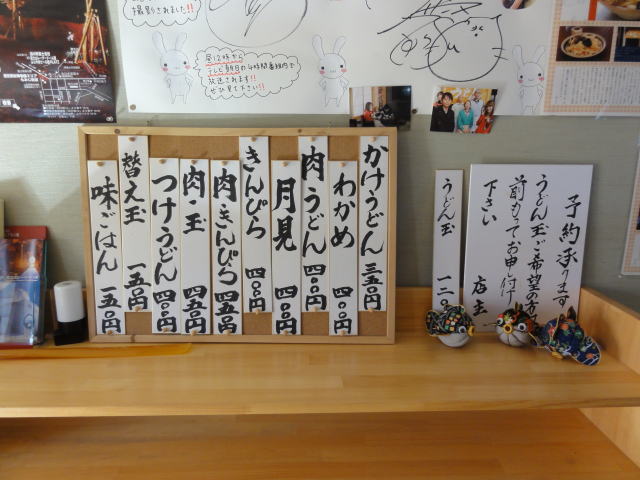 撮影されました!!
昼12時から
テレビ朝日の4時間番組内で
放送されます!!
ぜひ見て下さい!!
かけうどん 三五〇円
わかめ 四〇〇円
肉うどん 四〇〇円
月見 四〇〇円
きんぴら 四〇〇円
肉きんぴら 四五〇円
肉・玉 四五〇円
つけうどん 四〇〇円
替え玉 一五〇円
味ごはん 一五〇円
うどん玉 一二〇
予約承ります
うどん玉ご希望の方
前もってお申し付け
下さい 店主